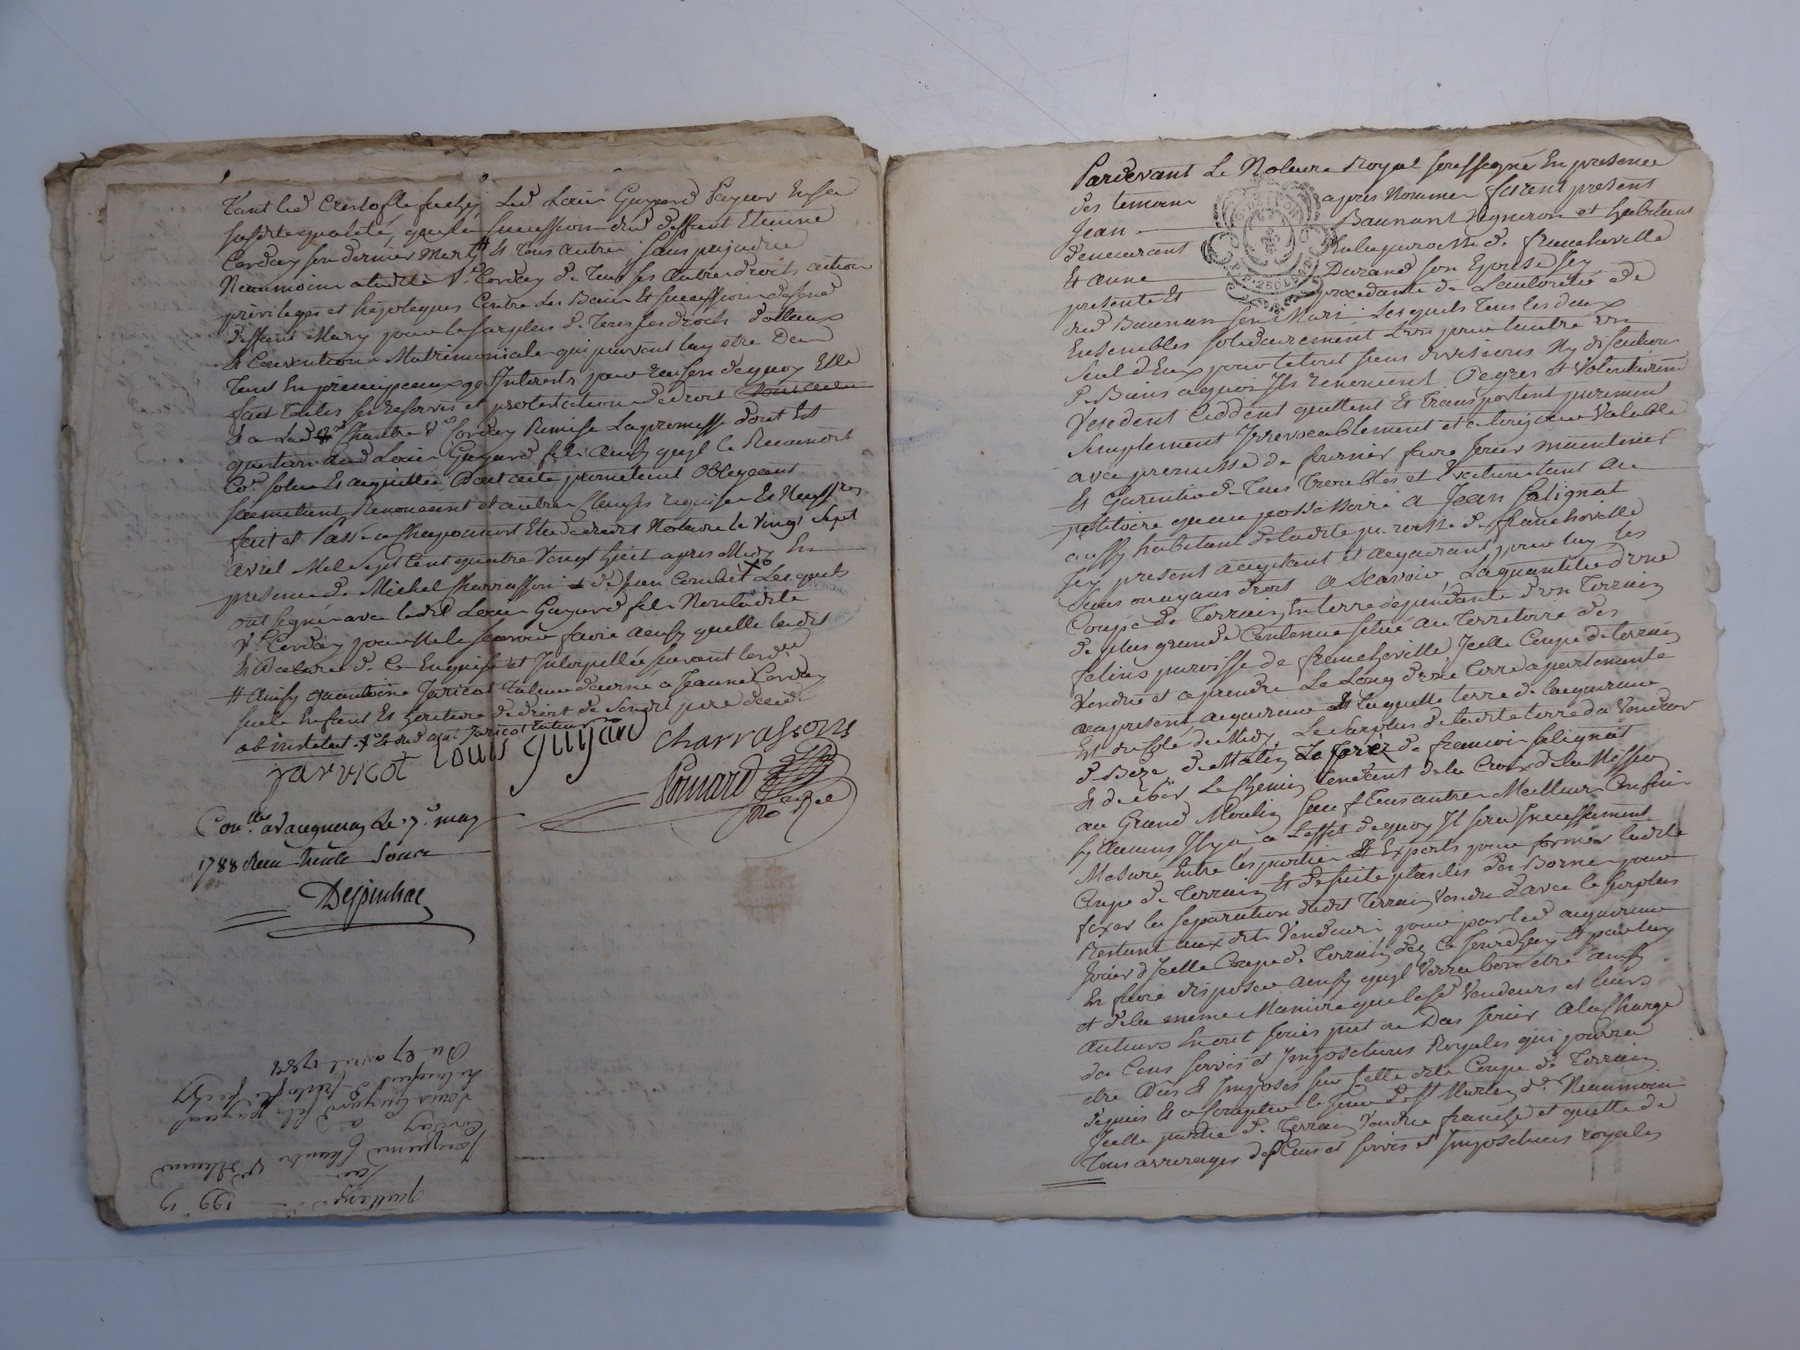 tant led Cristofle fuchez Led Louis Guyard Payeur En sa
susdite qualité, que la succession dud deffunt Etienne
Corday son dernier Mary # Et tous autres, sans prejudice
Neanmoins a ladite Ve Corday de tous ses autres droits action
privileges et hipoteques Contre Les Biens Et succession desond
deffunt Mary pour le surplus de tous ses droits
Et Convention Matrimoniale qui peuvent luy etre Deu
tant En principeaux que Interests pour raison de quoy Elle
fait toutes ses reserves et protestation de droit
Et a Lad Chantre Ve Corday Remise La promesse dont Est
question aud Louis Guyard fils Ainsy qu'il le Reconnoit
Cor. solue Et acquittée Dont acte promettant Obligeant
soumettant Renonceant et autres Clauses requises Et
fait et Passé a Chaponost Etude dudit Notaire le vingt sept
avril Mil sept Cent quatre vingt huit apres Midy En
presence de Michel Charrasson & de Jean Lesquels
ont signé avec ledit Louis Guyard fils Non ladite
Ve Corday pour Ne le sçavoir faire Ainsy quelle la dit
Et declaré de Ce Enquise et Interpellée suivant lord.ce
# Ainsy qu'antoine Jaricot Tuteur decerné a Jeanne Corday
fille Enfant Et heritiere de droit de Sond pere decedé
ab instetat Et led. Jaricot tuteur
jarricot Louis guyard charrasson
Ponard
No. Rl
Con.llé a Vaugneray Le 7e may
1788 Reçu trente sous
Despinhac
199 13
quittance de
Lao
Jacqueme Chantre Ve Etienne
Corday
a d
Louis Guyard fils Payeur
a lacquit de Cristofle fuchez
Du 27 avril 1788
Pardevant Le Notaire Royal soussigné En presence
des temoins apres Nommes furent present
Jean Baunant Vigneron et habitant
demeurant En la paroisse de francheville
Et anne Durand son Epouse Icy
presente Et procedante de L'autorité de
dud Baunan son Mari. Lesquels tous les deux
Ensembles solidairement L'un pour lautre un
seul d'Eux pour le tout sans divisions Ny discution
de Biens aquoy Ils renoncent. De gres et Volontairem.
Vendent Ceddent quittent Et transportent purement
simplement Irrevocablement et a toujours Valable
avec promesse de fournir faire Jouir maintenir
Et Garentir de Tous Troubles et Eviction tant au
petitoire quau possessoire a Jean Salignat
aussy habitant de ladite paroisse de francheville
Icy present acceptant et acquerant pour luy les
siens ou ayans droit A Scavoir, La quantité dune
Coupée de Terrain En terre dependante d'un Terrain
de plus grande Contenue situé au Territoire des
felins paroisse de francheville Icelle Coupée de terrain
Vendue et a prendre Le Long d'une terre apartenante
a present acquereur Et laquelle terre de lacquereur
Est du Coté de Midy, Le surplus de ladite terre du Vendeur
de Bize, de Matin La terre de francois Salignat
Et de soir Le Chemin tendent de la Croix de la Mission
au Grand Moulin sauf tous autres Meilleurs Confins
sy aucuns Ily a a Leffet dequoy Il sera Incessamment
Mesuré Entre les parties & Experts pour former ladite
Coupée de Terrain Et de suite placés des Bornes pour
fixer la separation dudit Terrain Vendu d'avec le surplus
Restant aux dits Vendeurs pour par led acquereur
Jouir d'Icelle Coupée de Terrain dez Ce Jourdhuy Et par luy
En faire disposer Ainsy qu'il Verra bon etre ainsy
et de la meme Maniere que lesd Vendeurs et leurs
auteurs En ont Jouis put ou Dus Jouir A la Charge
des Cens servis et Impositions Royales qui pourra
etre Dus Et Imposés sur Celle dite Coupée de Terrain
depuis Et a Compter le Jour de St Martin d. Neanmoins
Icelle partie de Terrain Vendue franche et quitte de
Tous arrerages de Cens et servis et Impositions royales